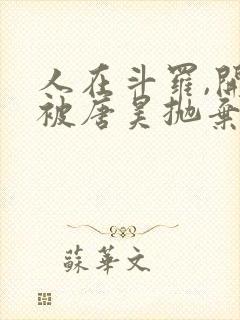 人在斗罗,開
被唐昊抛棄
蘇華文